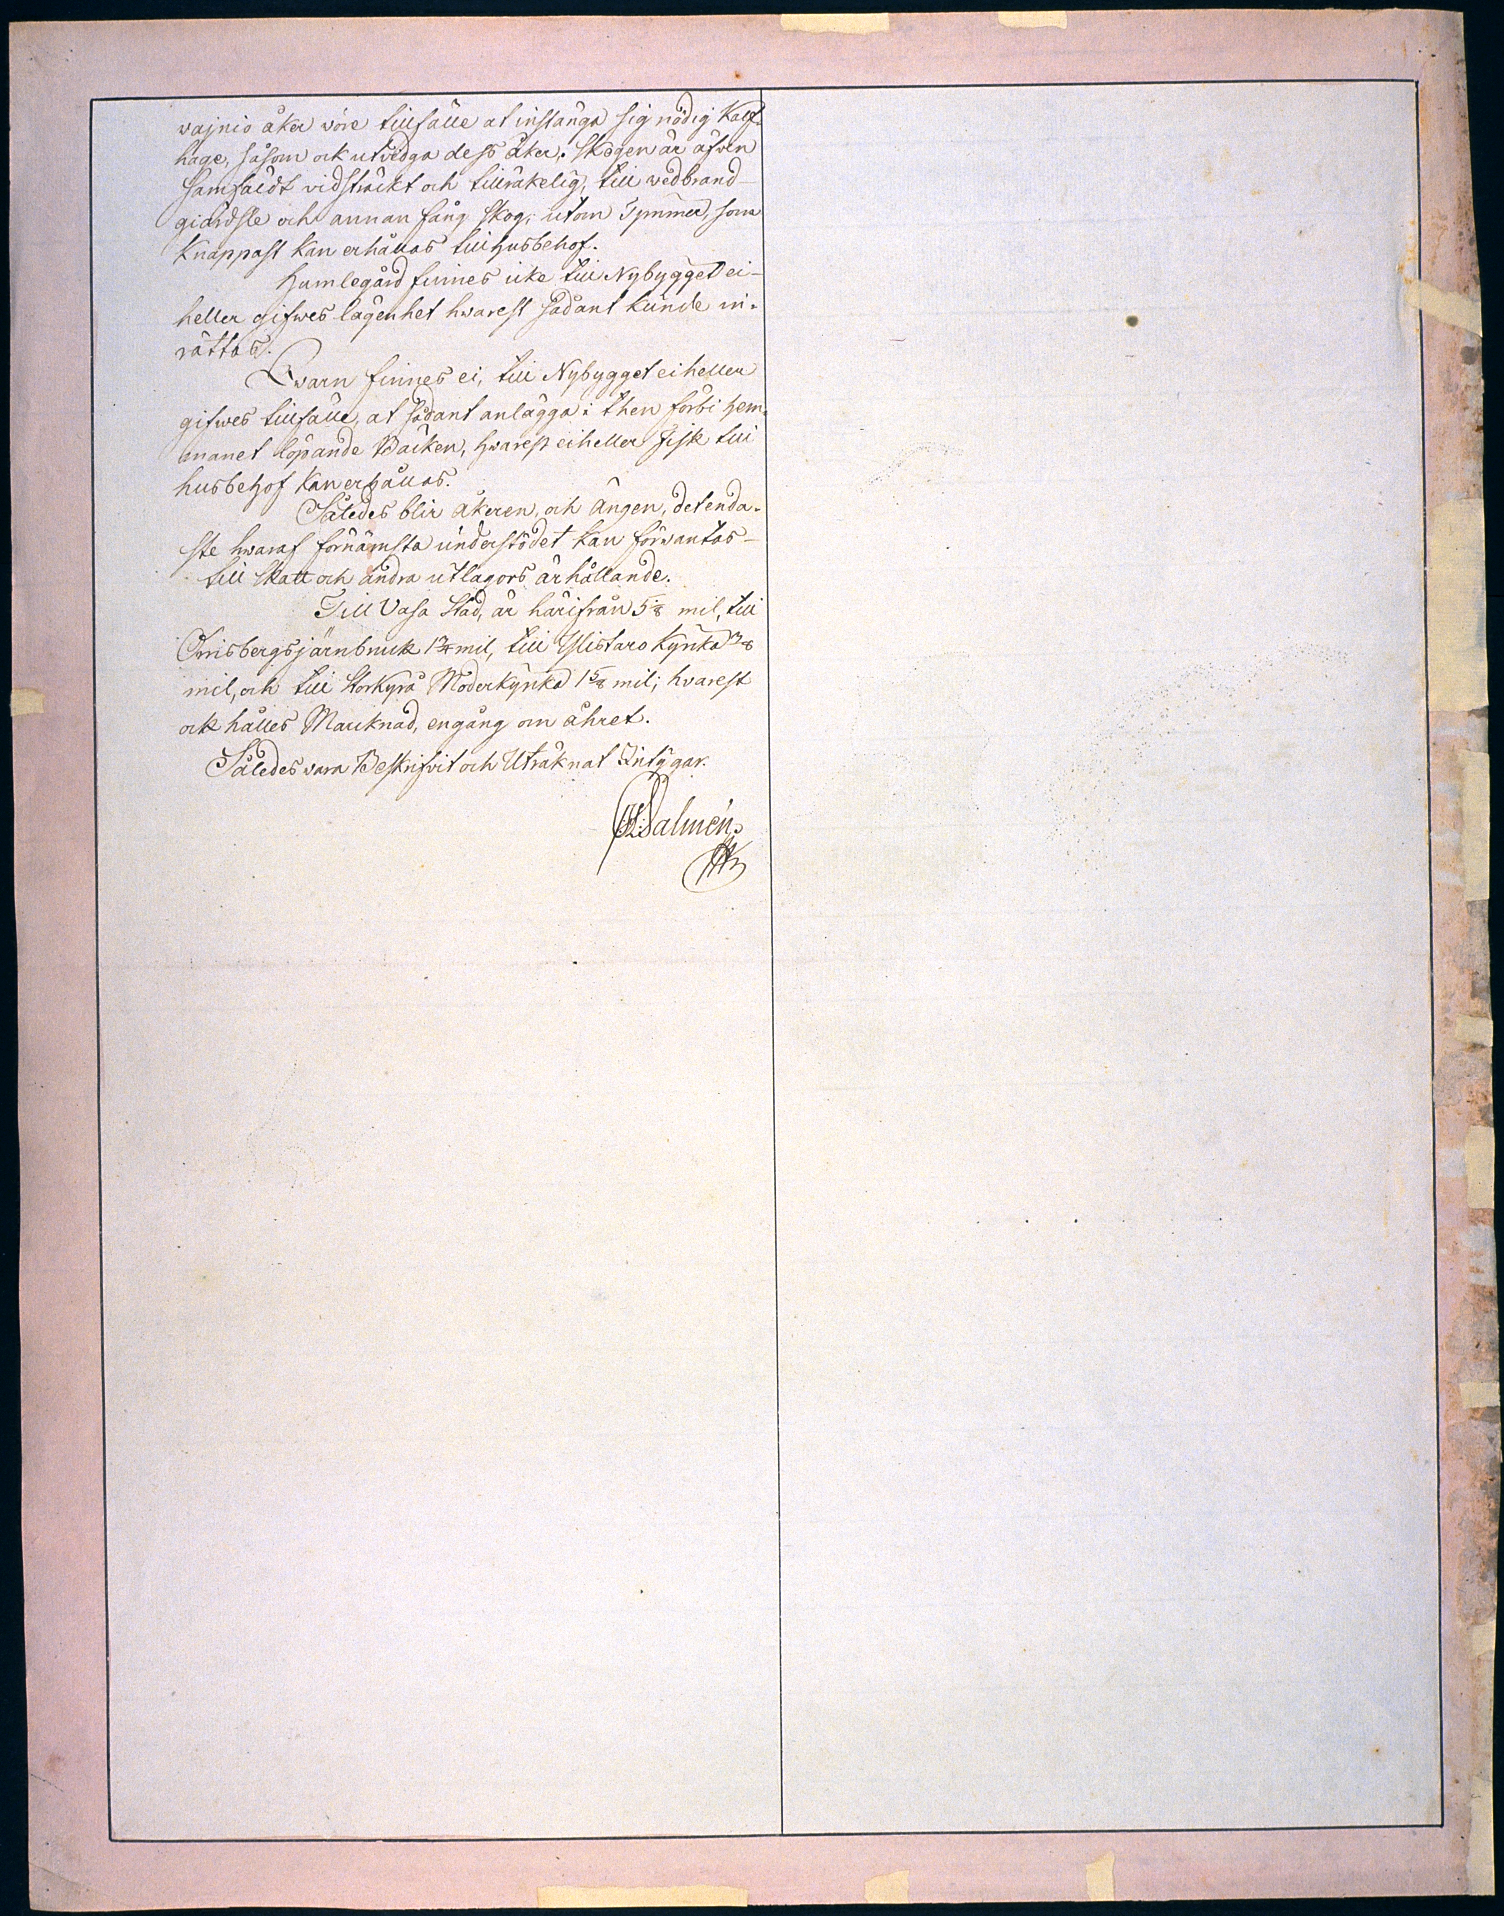 vajnio åker vore tillfälle at instänga sig nödig Kalf-
hage, såsom ock utvidga dess åker. Skogen är äfven
samfäldt vidsträckt och tillräkelig, till vedbrand
giärdsle och annan fång skog, utom Tymmer, som
knappast kan erhållas till husbehof.
Humlegård finnes icke till Nybygget ei-
heller gifwes lägenhet hwarest sådant kunde in-
rättas.
Qwarn finnes ei, till Nybygget eiheller
gifwes tillfälle, at sådant anlägga i then förbi hem-
manet löpande Bäcken, hwarest eiheller fisk till
husbehof kan erhållas.
Således blir åkeren, och Ängen, det enda-
ste hwaraf förnämsta understödet kan förwäntas
till skatt och andra utlagors ärhållande.
Till Vasa Stad, är härifrån 5 1/8 mil, till
Orrisbergs järnbruk 1 3/4 mil, till Ylistaro Kyrka
mil, och till Storkyrå Moderkyrka 1 5/8 mil; hvarest
ock hålles Marcknad, engång om åhret.
Således vara Beskrifvit och Uträknat Intygar.
Salmén.